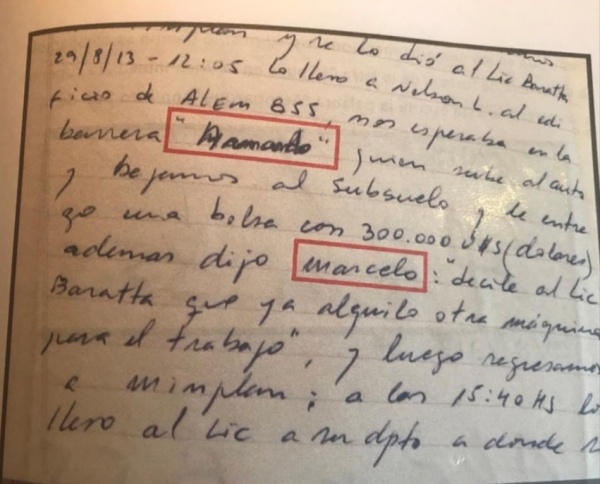 minplan y se lo dió al Lic Baratta
29/8/13 - 12:05 lo llevo a Nelson L. al edi
ficio de ALEM 855, nos esperaba en la
barrera "Armando" quien sube al auto
y bajamos al subsuelo y le entre
go una bolsa con 300.000 U$S (dolares)
ademas dijo Marcelo: "decile al Lic
Baratta que ya alquilo otra máquina
para el trabajo", y luego regresamos
a minplan; a las 15:40 Hs lo
llevo al Lic a su dpto a donde